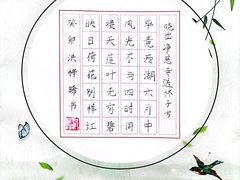 晓出净慈寺送林子方
毕竟西湖六月中
风光不与四时同
接天莲叶无穷碧
映日荷花别样红
癸卯 洪梓 书